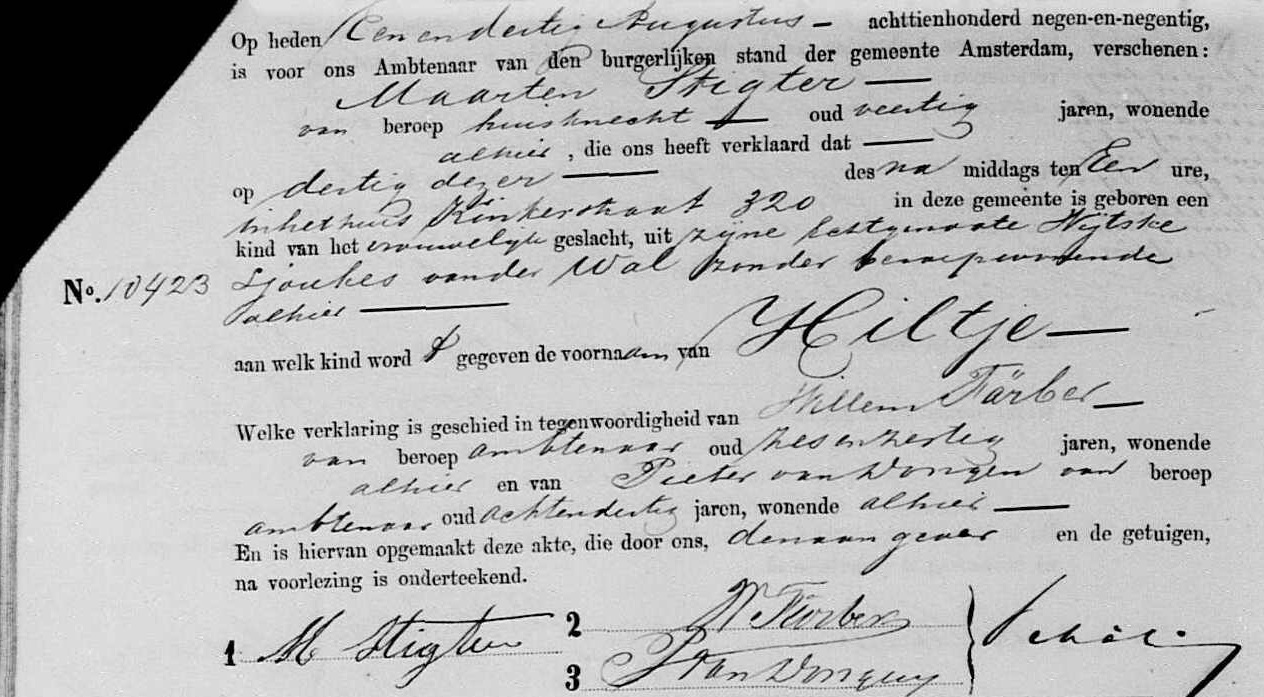 Op heden Een en dertig Augustus – achttienhonderd negen-en-negentig,
is voor ons Ambtenaar van den burgerlijken stand der gemeente Amsterdam, verschenen:
Maarten Stigter —
van beroep huisknecht — oud veertig jaren, wonende
alhier, die ons heeft verklaard dat —
op dertig dezer — des na middags ten Een ure,
in het huis Kinkerstraat 320 in deze gemeente is geboren een
kind van het vrouwelijk geslacht, uit zijne Echtgenoote Wijtske
No. 10423 Sjoukes van der Wal zonder beroep wonende
alhier —
aan welk kind word t gegeven de voornaam van Hiltje —
Welke verklaring is geschied in tegenwoordigheid van Willem Färber —
van beroep ambtenaar oud zesenzestig jaren, wonende
alhier en van Pieter van Dongen van beroep
ambtenaar oud achtendertig jaren, wonende alhier —
En is hiervan opgemaakt deze akte, die door ons, den aangever en de getuigen,
na voorlezing is onderteekend.
1 M Stigter 2 W Färber
3 P van Dongen